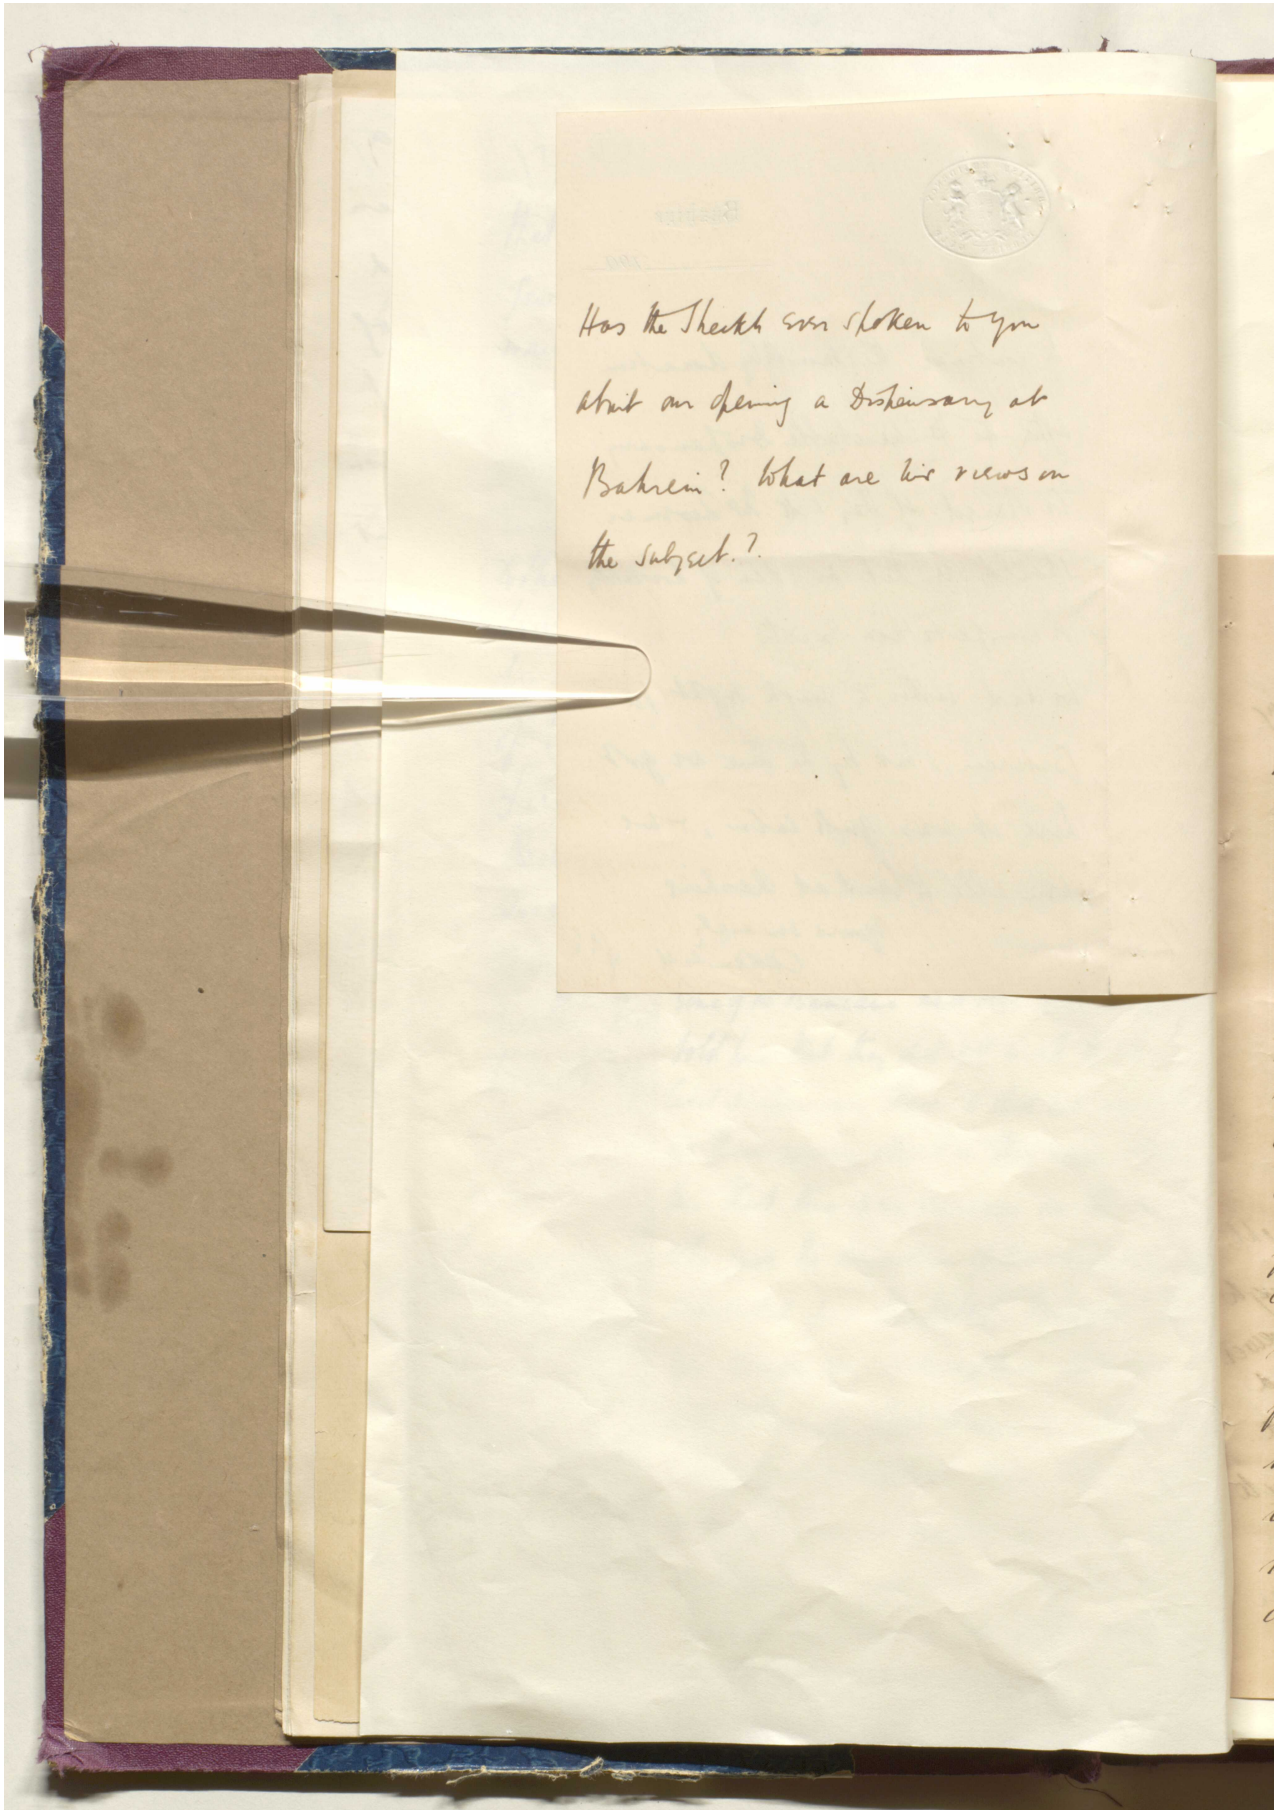 Has the Sheikh ever spoken to you
about our opening a Dispensary at
Bahrein? What are his views on
the subject.?.